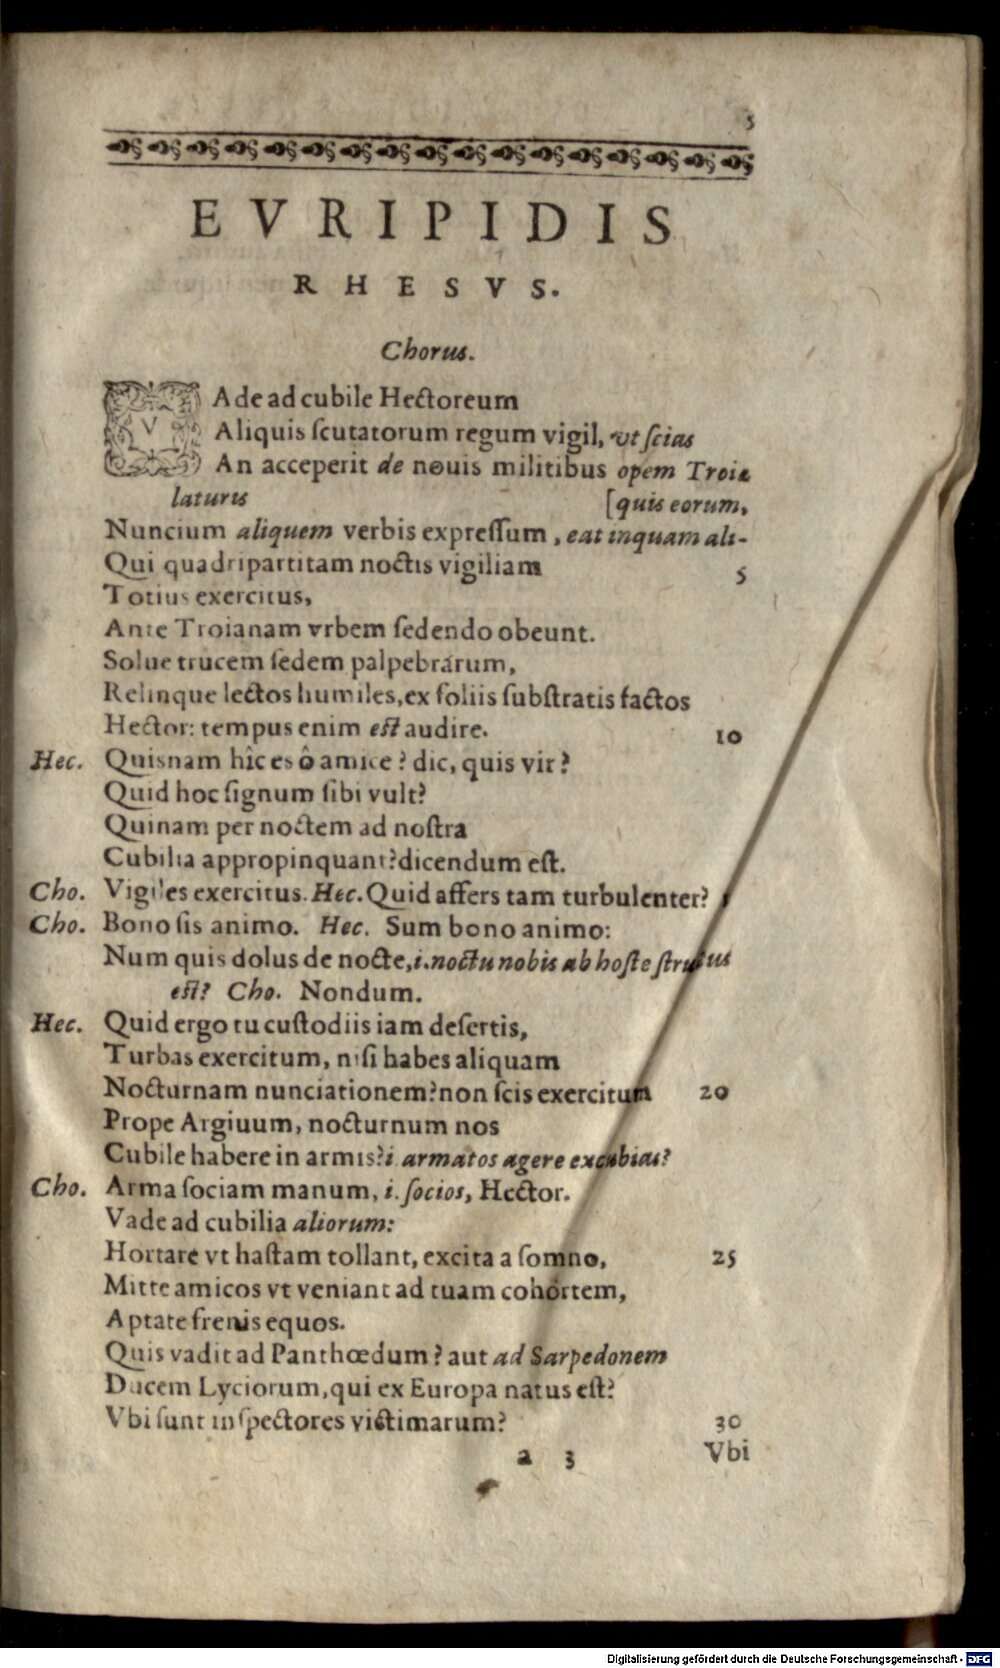 3
EVRIPIDIS
RHESVS.
Chorus.
VAde ad cubile Hectoreum
Aliquis ſcutatorum regum vigil, vt ſcias
An acceperit de nouis militibus opem Troiæ
laturis [quis eorum,
Nuncium aliquem verbis expreſſum, eat inquam ali-
Qui quadripartitam noctis vigiliam 5
Totius exercitus,
Ante Troianam vrbem ſedendo obeunt.
Solue trucem ſedem palpebrarum,
Relinque lectos humiles, ex foliis ſubſtratis factos
Hector: tempus enim eſt audire. 10
Hec. Quisnam hîc es ô amice? dic, quis vir?
Quid hoc ſignum ſibi vult?
Quinam per noctem ad noſtra
Cubilia appropinquant? dicendum eſt.
Cho. Vigiles exercitus. Hec. Quid affers tam turbulenter?
Cho. Bono ſis animo. Hec. Sum bono animo:
Num quis dolus de nocte, i. noctu nobis ab hoſte ſtructus
eſt? Cho. Nondum.
Hec. Quid ergo tu cuſtodiis iam deſertis,
Turbas exercitum, niſi habes aliquam
Nocturnam nunciationem? non ſcis exercitum 20
Prope Argiuum, nocturnum nos
Cubile habere in armis? i. armatos agere excubias?
Cho. Arma ſociam manum, i. ſocios, Hector.
Vade ad cubilia aliorum:
Hortare vt haſtam tollant, excita a ſomno, 25
Mitte amicos vt veniant ad tuam cohortem,
Aptate frenis equos.
Quis vadit ad Panthœdum? aut ad Sarpedonem
Ducem Lyciorum, qui ex Europa natus eſt?
Vbi ſunt inſpectores victimarum? 30
a 3 Vbi
Digitalisierung gefördert durch die Deutsche Forschungsgemeinschaft - DFG